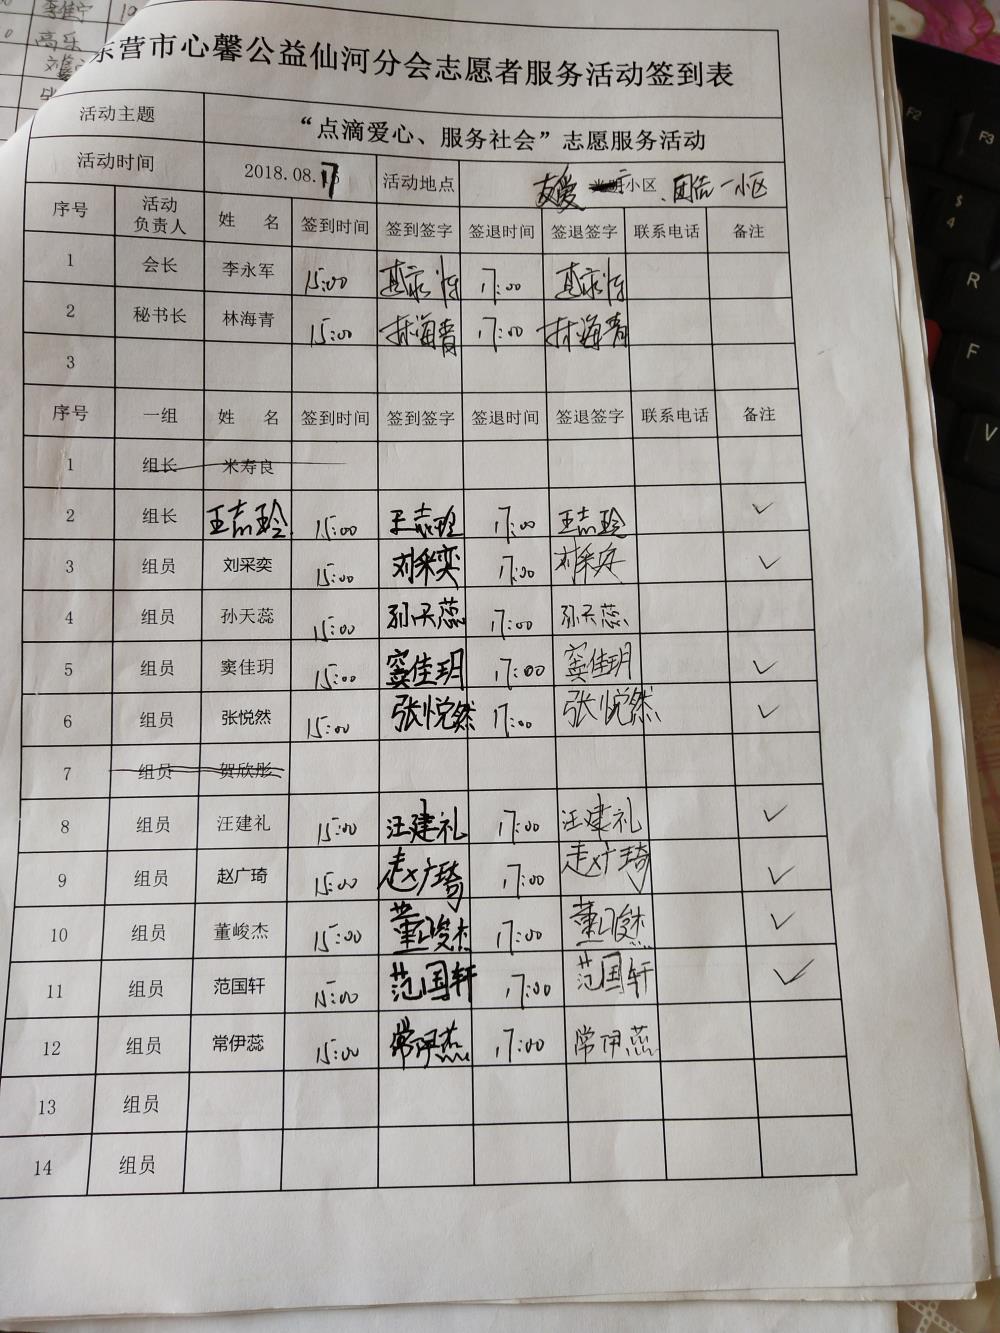 李佳宁 19
高乐
东营市心馨公益仙河分会志愿者服务活动签到表
活动主题 “点滴爱心、服务社会”志愿服务活动
活动时间 2018.08.17 活动地点 友爱 小区 、团结一小区
序号 活动负责人 姓 名 签到时间 签到签字 签退时间 签退签字 联系电话 备注
1 会长 李永军 15:00 17:00
2 秘书长 林海青 15:00 林海青 17:00 林海青
3
序号 一组 姓 名 签到时间 签到签字 签退时间 签退签字 联系电话 备注
1 组长 米寿良
2 组长 王志玲 15:00 王志玲 17:00 王志玲 ✓
3 组员 刘采奕 15:00 刘采奕 17:00 刘采奕 ✓
4 组员 孙天蕊 15:00 孙天蕊 17:00 孙天蕊
5 组员 窦佳玥 15:00 窦佳玥 17:00 窦佳玥 ✓
6 组员 张悦然 15:00 张悦然 17:00 张悦然 ✓
7 组员 贺欣彤
8 组员 汪建礼 15:00 汪建礼 17:00 汪建礼 ✓
9 组员 赵广琦 15:00 赵广琦 17:00 赵广琦 ✓
10 组员 董峻杰 15:00 董峻杰 17:00 董峻杰 ✓
11 组员 范国轩 15:00 范国轩 17:00 范国轩 ✓
12 组员 常伊蕊 15:00 常伊蕊 17:00 常伊蕊
13 组员
14 组员
F2
F3
$
4
R
F
V